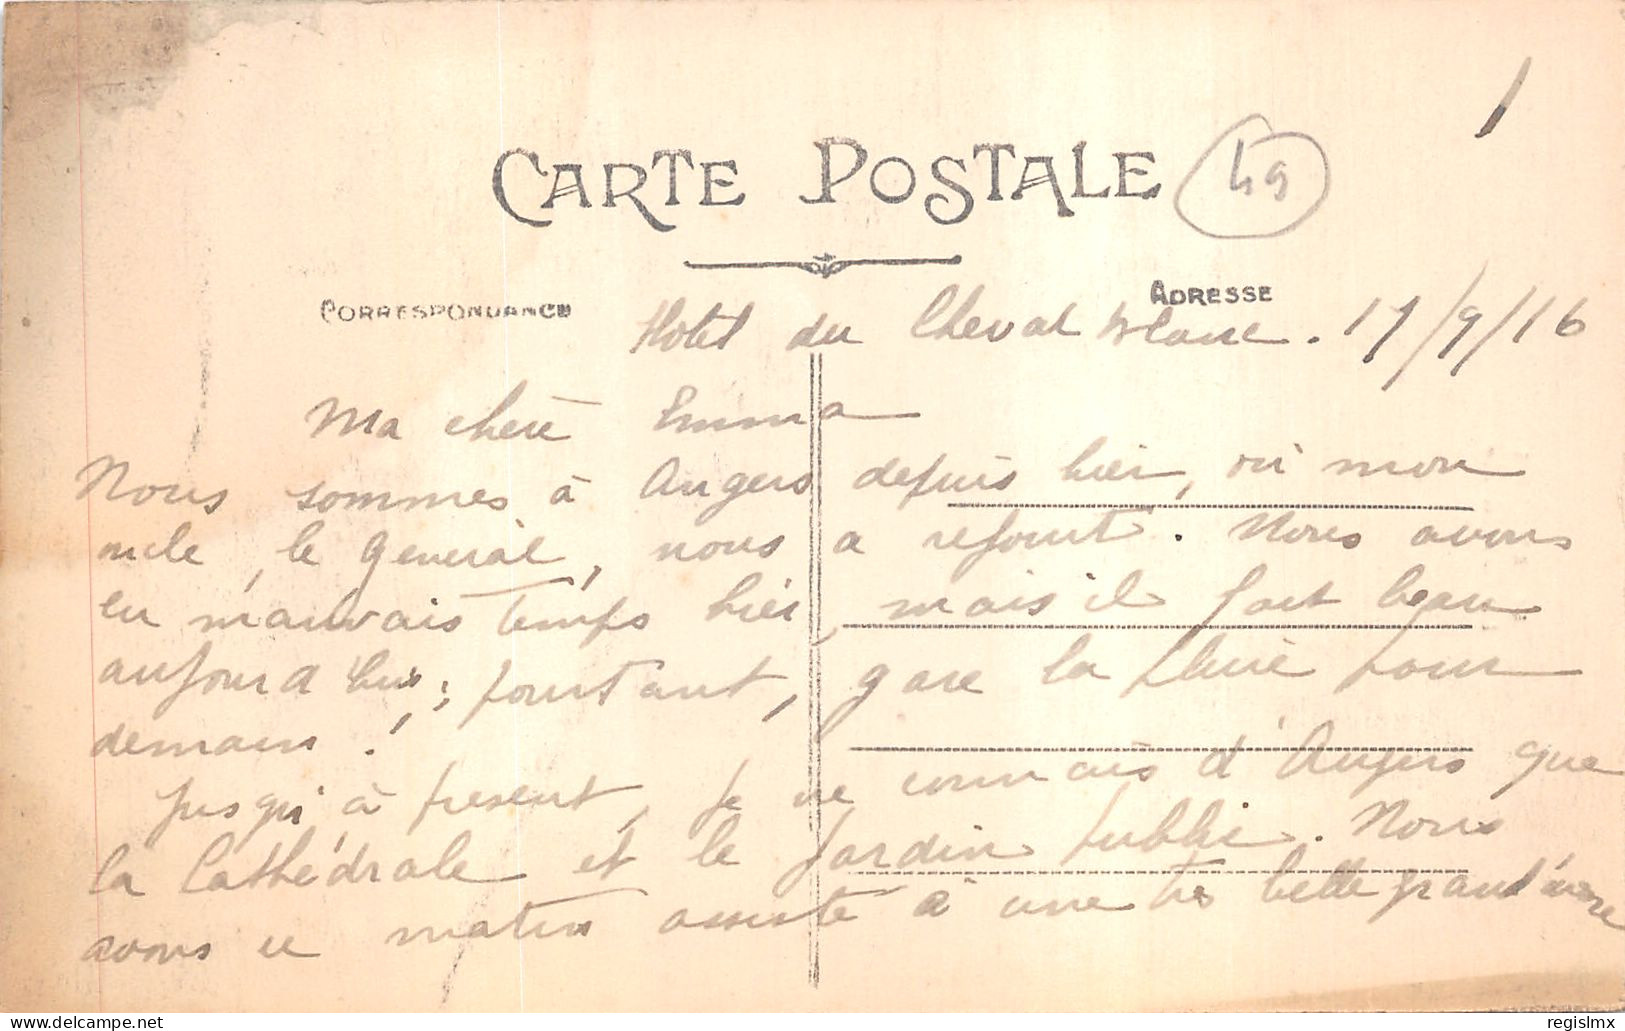 1
CARTE POSTALE
49
CORRESPONDANCE
ADRESSE
Hotel du Cheval blanc. 17/9/16
Ma chère Emma
Nous sommes à Angers depuis hier, où mon
oncle, le Général, nous a rejoint. Nous avons
eu mauvais temps hier, mais il fait beau
aujourd'hui; pourtant, gare la pluie pour
demain!
Jusqu'à présent, je ne connais d'Angers que
la Cathédrale et le jardin public. Nous
avons ce matin assisté à une très belle grand'messe
regislmx